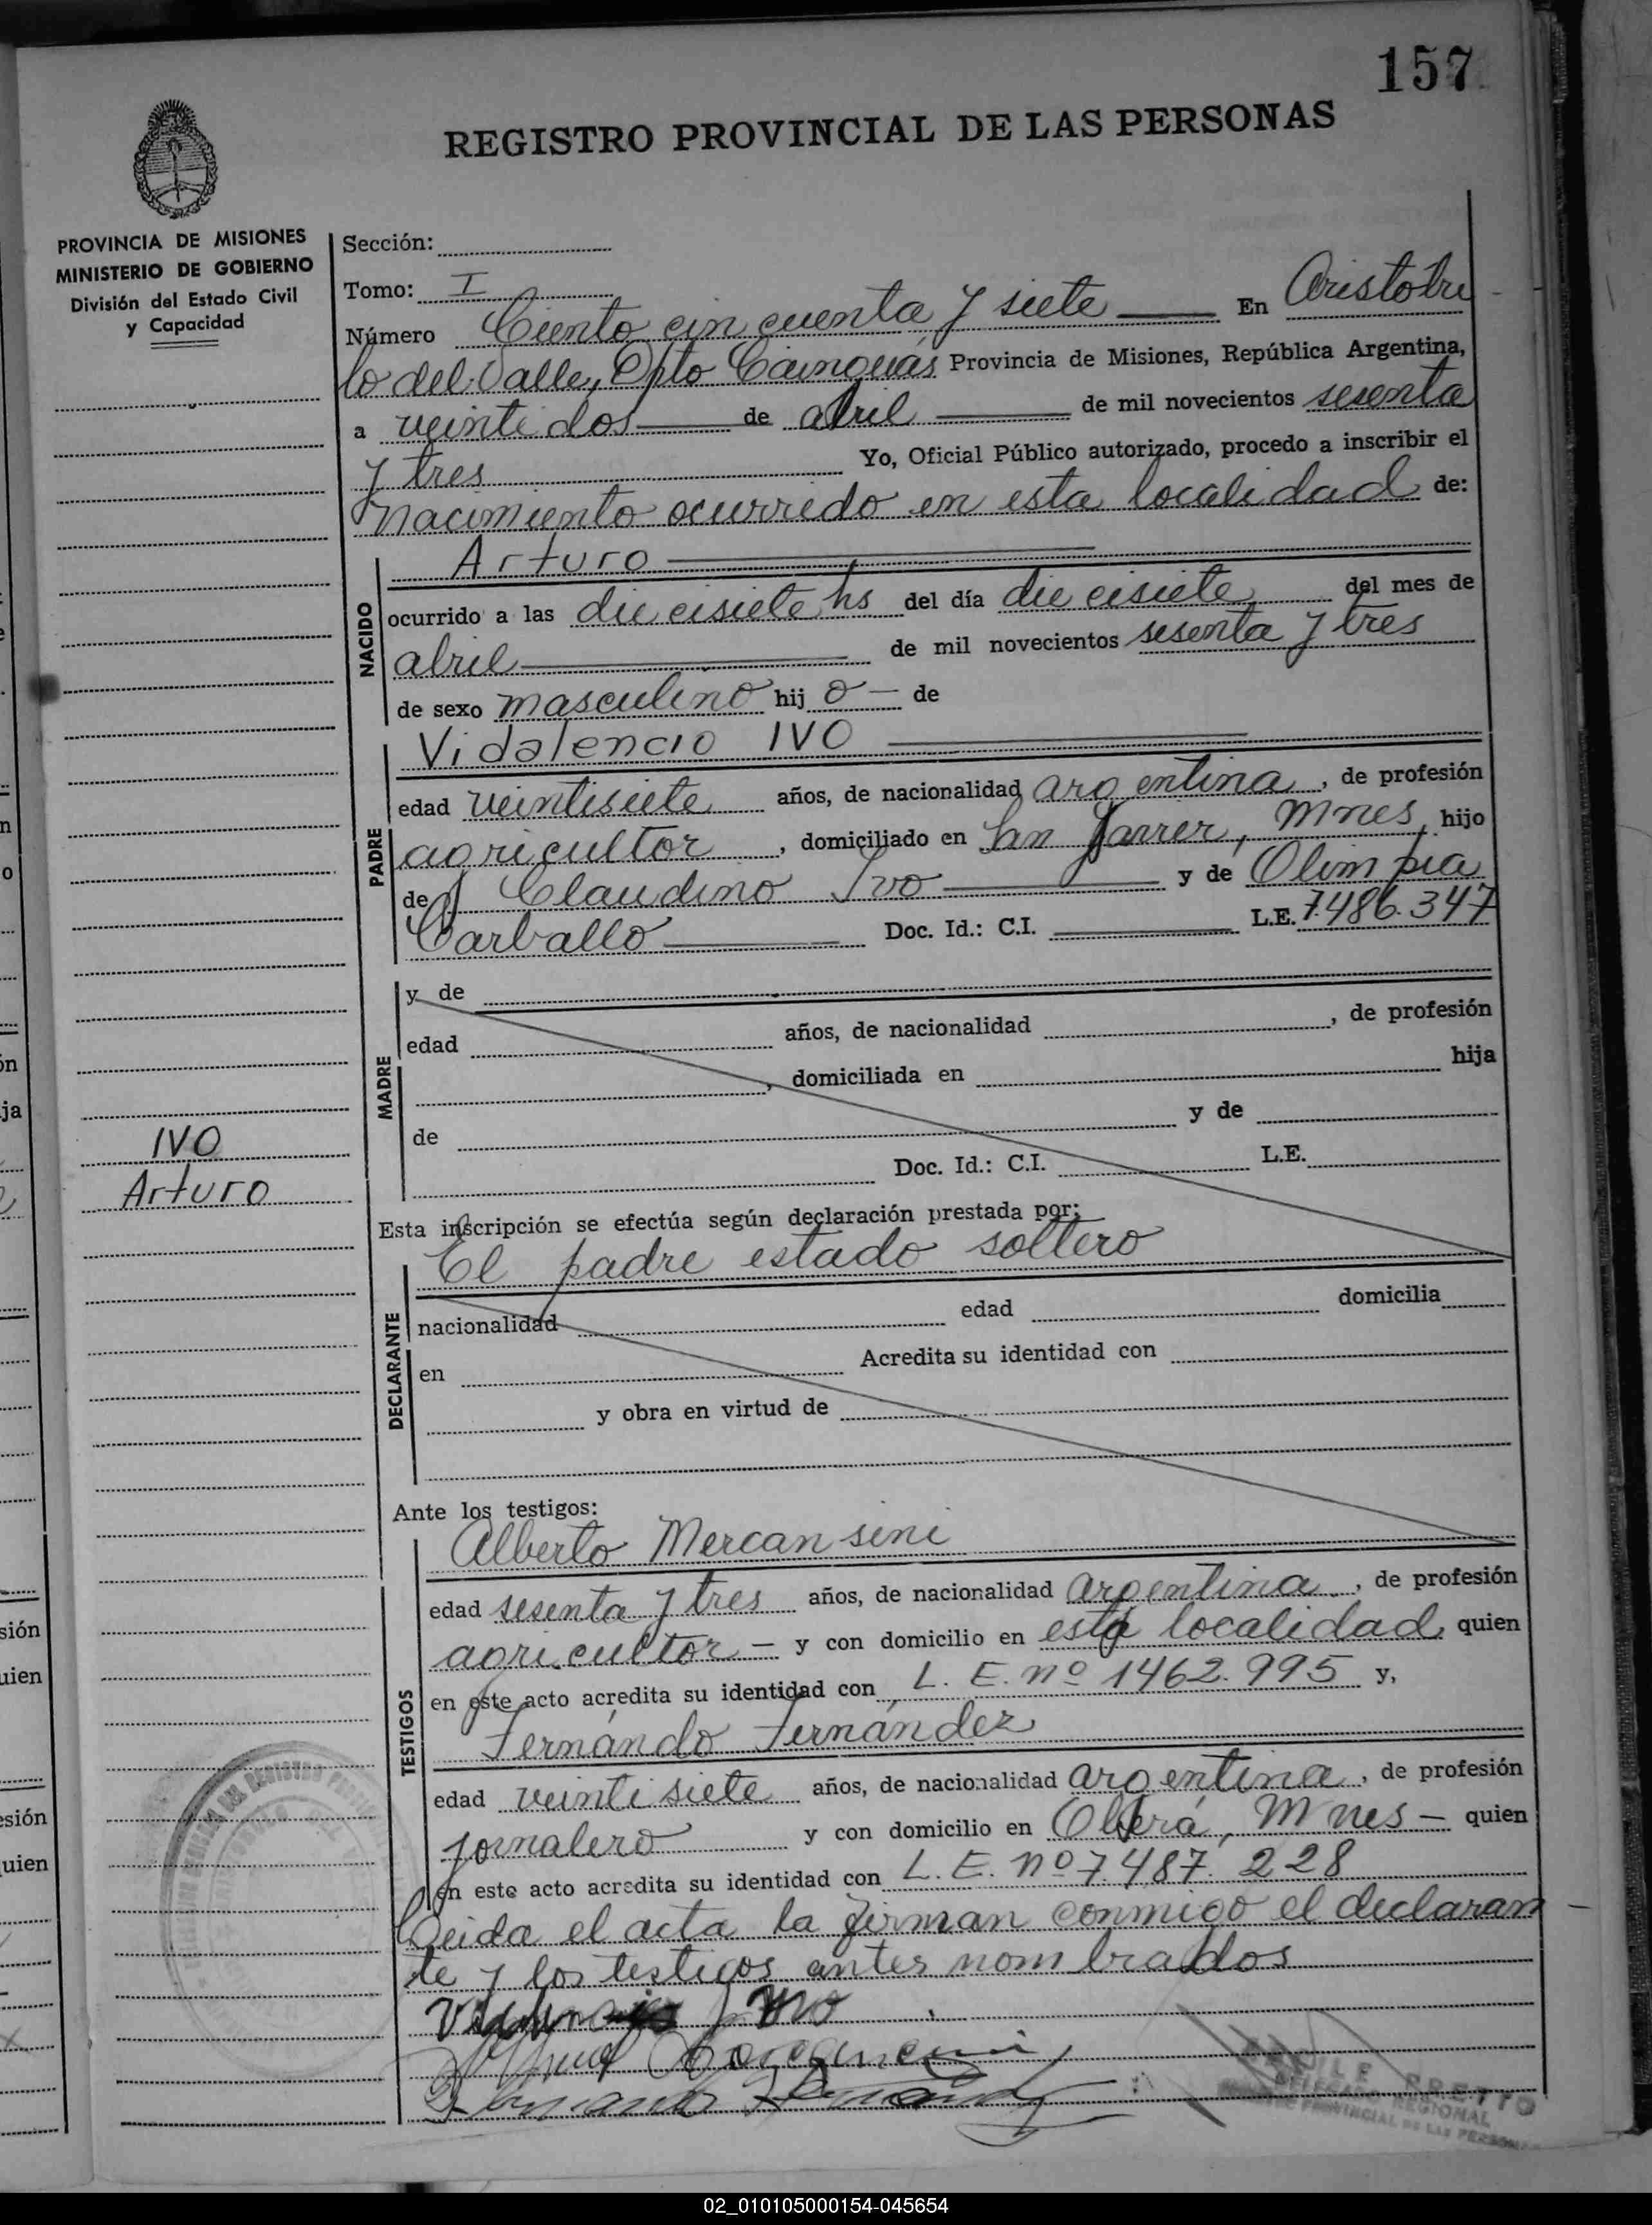 157
REGISTRO PROVINCIAL DE LAS PERSONAS
PROVINCIA DE MISIONES
MINISTERIO DE GOBIERNO
División del Estado Civil
y Capacidad
Sección:
Tomo: I
Número Ciento cin cuenta y siete En Aristobu
lo del Valle, Dpto Cainguás Provincia de Misiones, República Argentina,
a veinti dos de abril de mil novecientos sesenta
y tres Yo, Oficial Público autorizado, procedo a inscribir el
nacimiento ocurrido en esta localidad de:
Arturo
NACIDO
ocurrido a las diecisiete hs del día diecisiete del mes de
abril de mil novecientos sesenta y tres
de sexo masculino hij o de
Vidalencio IVO
PADRE
edad veintisiete años, de nacionalidad argentina, de profesión
agricultor, domiciliado en San Javier, Mnes, hijo
de Claudino Ivo y de Olimpia
Carballo Doc. Id.: C.I. L.E. 7.486.347
MADRE
y de
edad años, de nacionalidad , de profesión
, domiciliada en hija
de y de
Doc. Id.: C.I. L.E.
IVO
Arturo
Esta inscripción se efectúa según declaración prestada por:
El padre estado soltero
DECLARANTE
nacionalidad edad domicilia
en Acredita su identidad con
y obra en virtud de
Ante los testigos:
Alberto Mercansini
TESTIGOS
edad sesenta y tres años, de nacionalidad argentina, de profesión
agricultor - y con domicilio en esta localidad quien
en este acto acredita su identidad con L. E. nº 1462.995 y,
Fernándo Fernández
edad veinti siete años, de nacionalidad argentina, de profesión
jornalero y con domicilio en Oberá, Mnes - quien
en este acto acredita su identidad con L. E. nº 7.487.228
Leida el acta la firman conmigo el declaran
te y los testigos antes nombrados
Ivo
PRETTO
DELEGADO REGIONAL
PROVINCIAL DE LAS PERSONAS
02_010105000154-045654